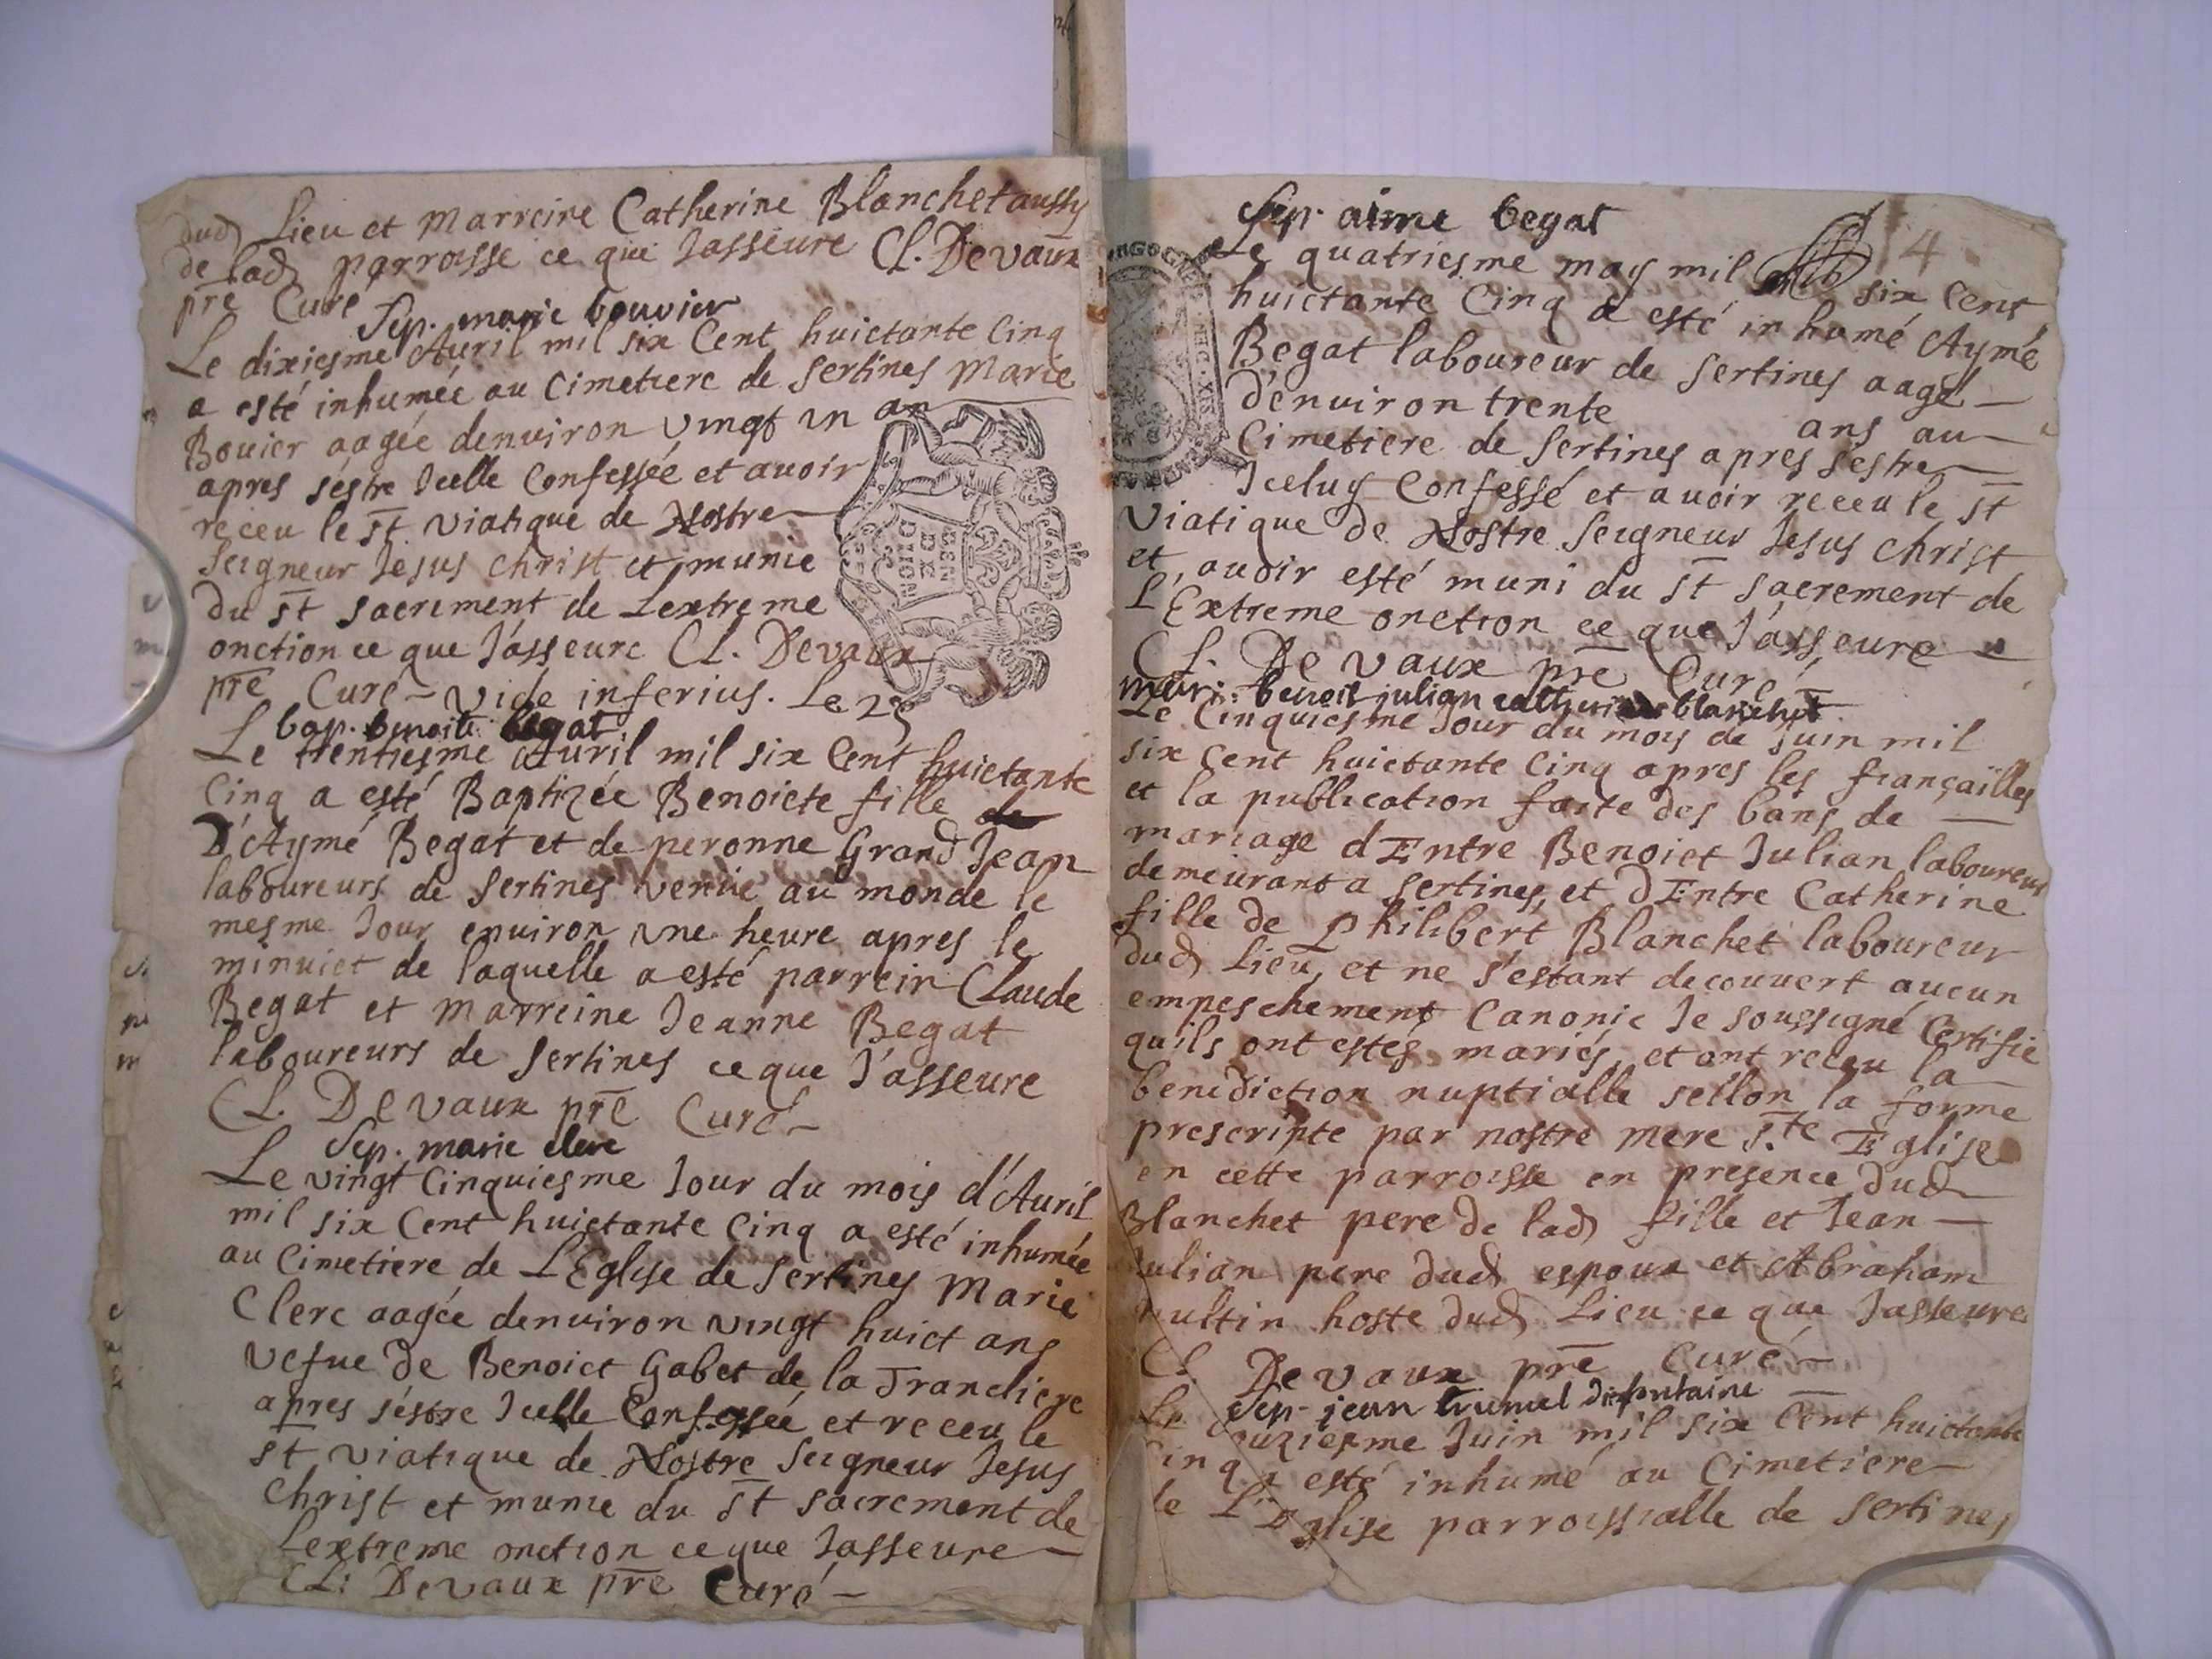 dud Lieu et Marreine Catherine Blanchet aussy
de lad parroisse ce que Jasseure CL. Devaux
pre Curé
Sep. marie bouvier
Le dixiesme Avril mil six Cent huictante Cinq
a esté inhumée au Cimetiere de Sertines Marie
Bouier aagée denuiron vingt un an
apres s'éstre Jcelle Confessée et auoir
receu le St Viatique de Nostre
Seigneur Jesus Christ et munie
du St Sacrement de Lextreme
onction ce que J'asseure CL. Devaux
pre Curé - vide inferius. Le 25
bap. benoite begat
Le trentiesme Auril mil six Cent huictante
Cinq a esté Baptizée Benoicte fille de
D'Aymé Begat et de peronne Grand Jean
laboureurs de Sertines venüe au monde le
mesme Jour enuiron une heure apres le
minuict de laquelle a esté parrein Claude
Begat et Marreine Jeanne Begat
laboureurs de Sertines ce que J'asseure
CL. Devaux pre Curé
Sep. marie clerc
Le vingt Cinquiesme Jour du mois d'Auril
mil six Cent huictante Cinq a esté inhumée
au Cimetiere de L'Eglise de Sertines Marie
Clerc aagée denuiron vingt huict ans
vefue de Benoict Gabet de la Trancliere
apres s'éstre Jcelle Confessée et receu le
St viatique de Nostre Seigneur Jesus
Christ et munie du St Sacrement de
Lextreme onction ce que Jasseure
CL: Devaux pre Curé
4
Sep. aime begat
Le quatriesme may mil six Cent
huictante Cinq a esté inhumé Aymé
Begat laboureur de Sertines aagé
d'enuiron trente ans au
Cimetiere de Sertines apres s'estre
Jceluy Confessé et auoir receu le St
Viatique de Nostre Seigneur Jesus Christ
et auoir esté muni du St Sacrement de
L'Extreme onction ce que J'asseure
CL. Devaux pre Curé
mar: benoit julian catherine blanchet
Le Cinquiesme Jour du moys de Juin mil
six Cent huictante Cinq apres les françailles
et la publication faite des bans de
mariage dEntre Benoict Julian laboureur
demeurant a Sertines, et dEntre Catherine
fille de Philibert Blanchet laboureur
dud Lieu, et ne s'estant decouvert aucun
empeschement Canonic Je soussigné Certifie
quils ont estés mariés, et ont receu la
benediction nuptialle sellon la forme
prescripte par nostre mere Ste Eglise
en cette parroisse en presence dud
Blanchet pere de lad fille et Jean
Julian pere dud espoux et Abraham
hoste dud Lieu ce que Jasseure
CL. Devaux pre Curé
Sep. jean dit fontaine
Le Juin mil six Cent huictante
Cinq a esté inhumé au Cimetiere
de L'Eglise parroissialle de Sertines